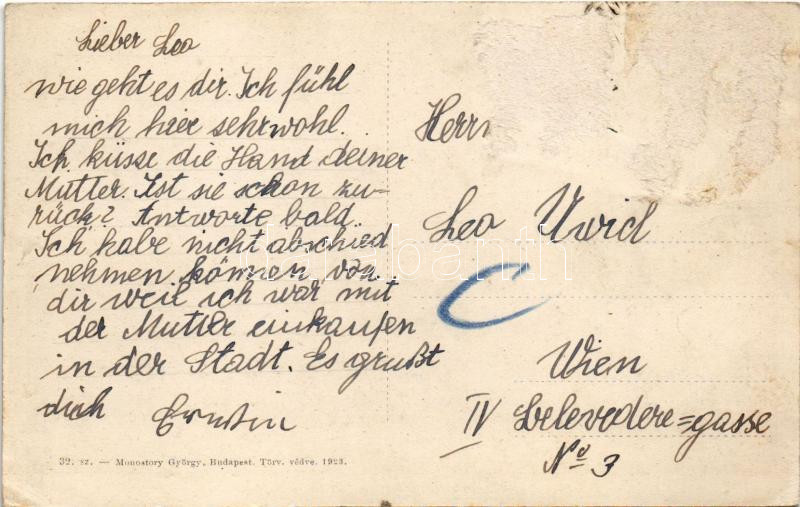 Lieber Leo
wie geht es dir. Ich fühl
mich hier sehr wohl.
Ich küsse die Hand deiner
Mutter. Ist sie schon zu-
rück? Antworte bald.
Ich habe nicht abschied
nehmen können von
dir weil ich war mit
der Mutter einkaufen
in der Stadt. Es grußt
dich Erwin
32. sz. — Monostory György, Budapest. Törv. védve. 1923.
Herrn
Leo
Wien
IV Belevedere=gasse
No 3
darabanth